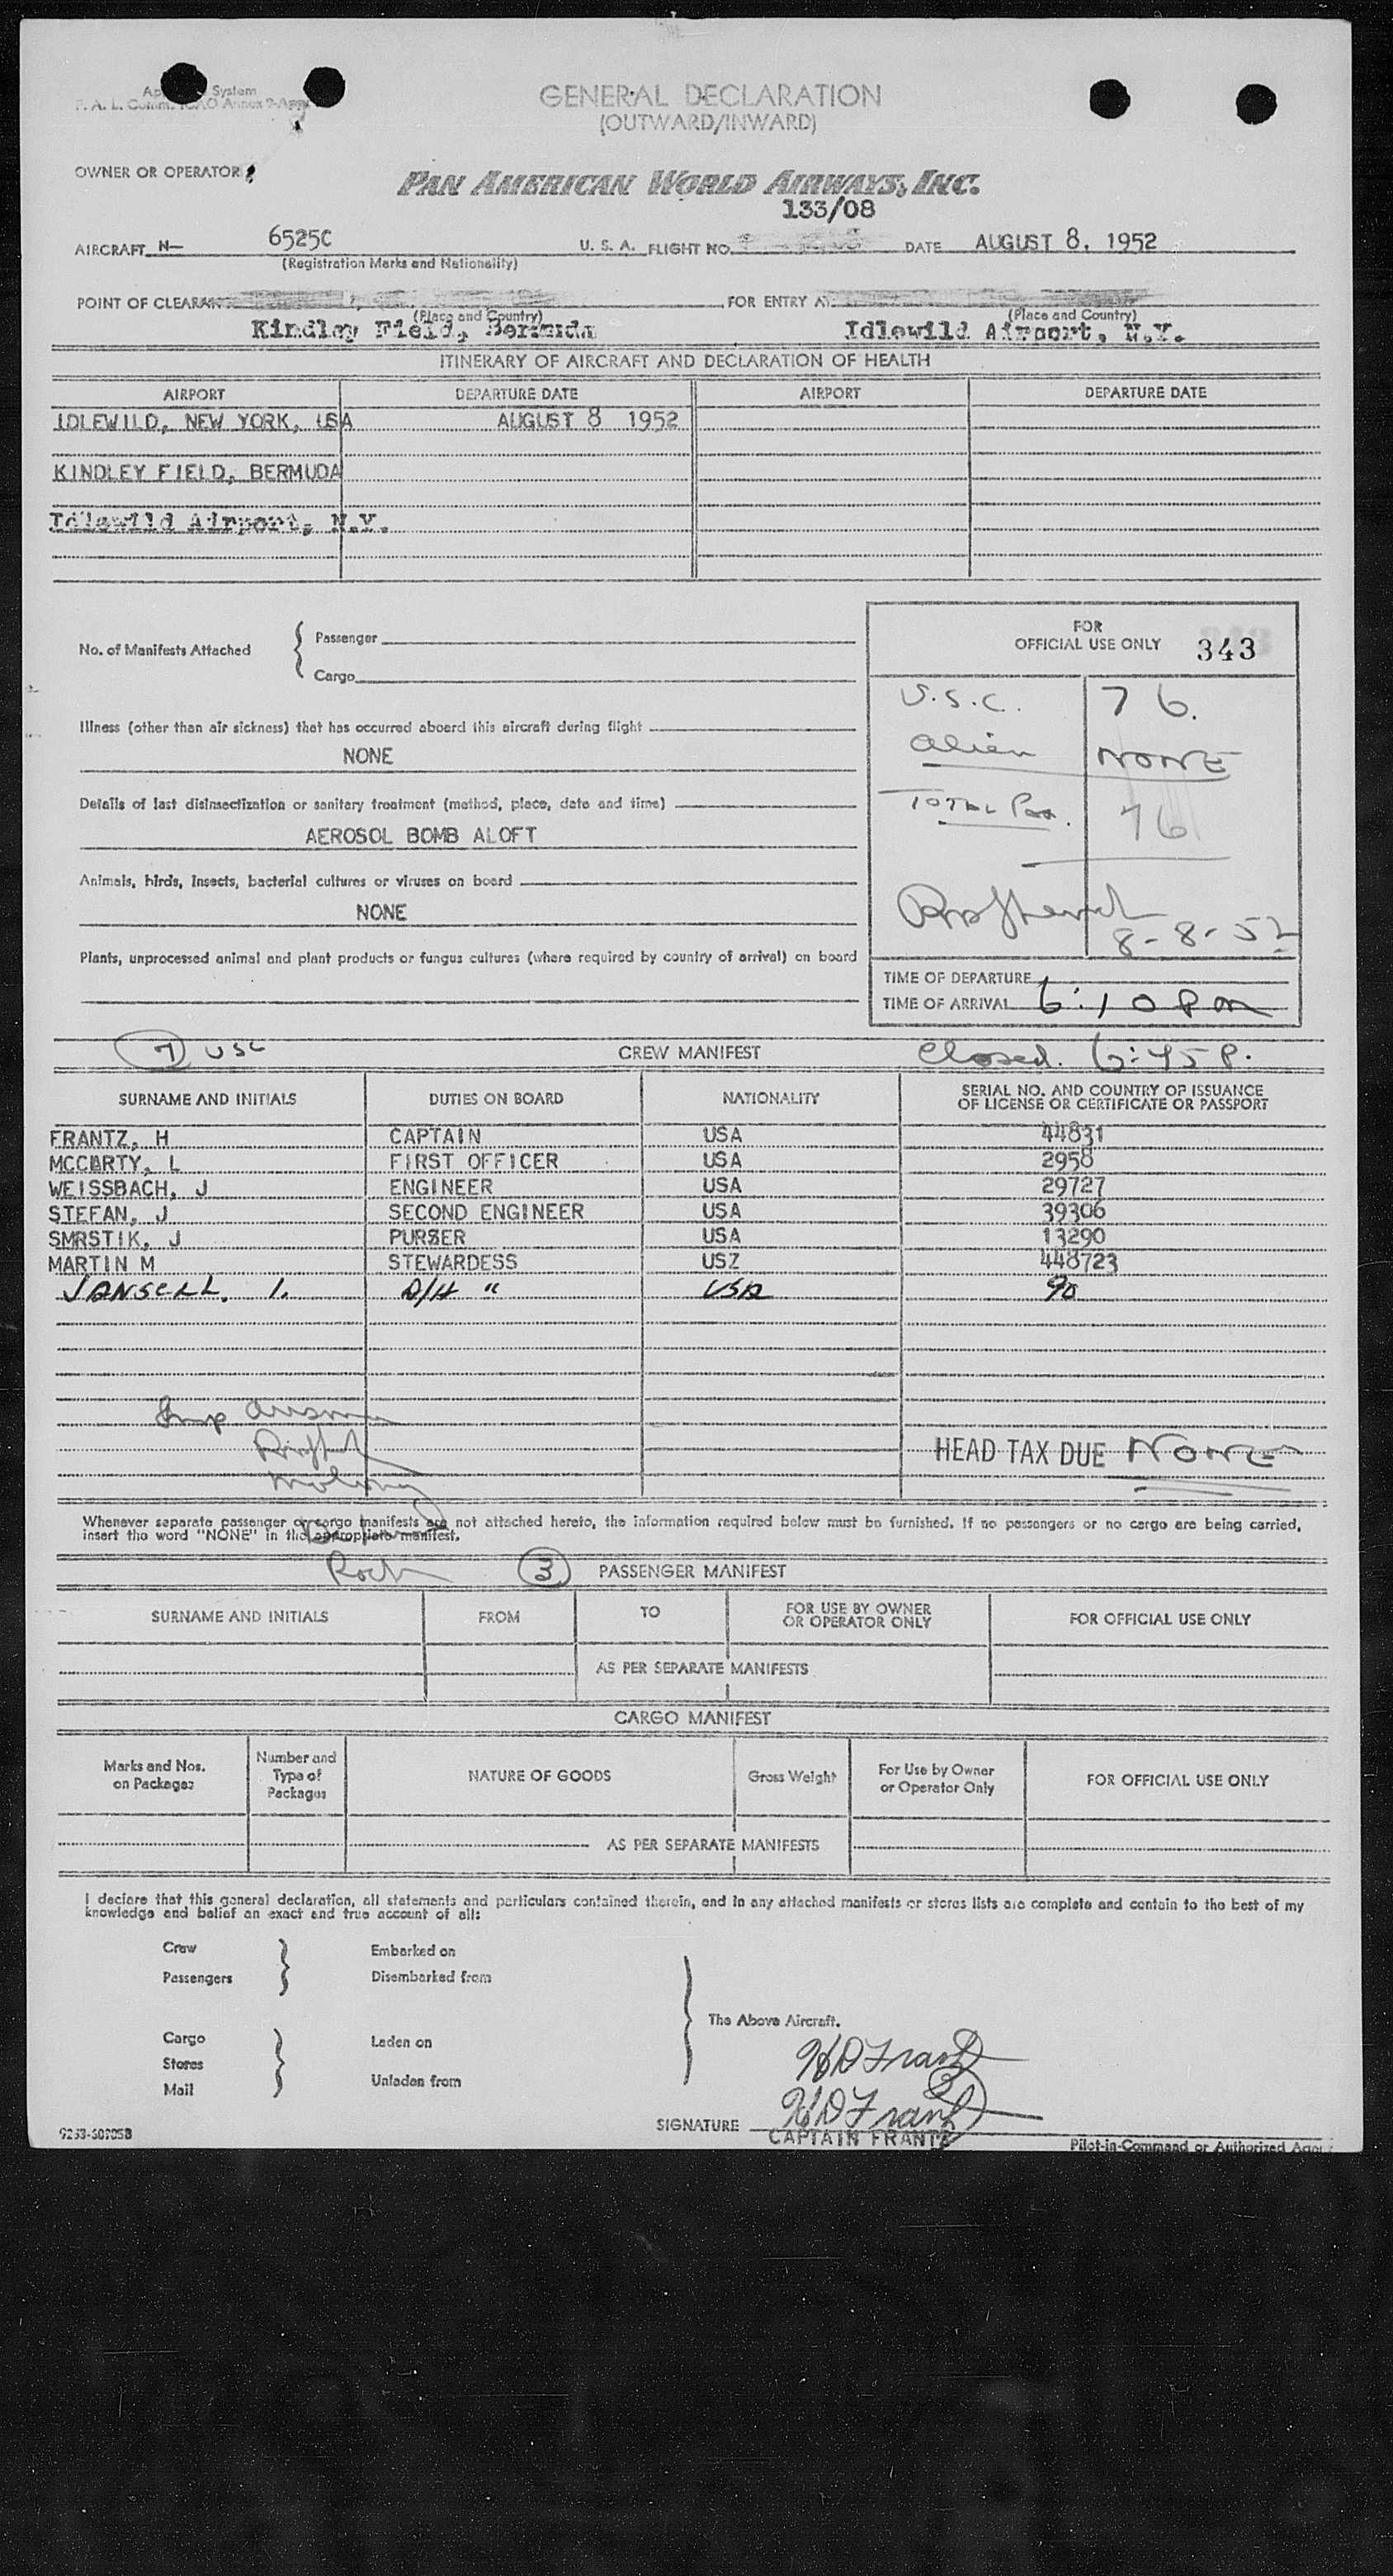 GENERAL DECLARATION
(OUTWARD/INWARD)
OWNER OR OPERATOR
PAN AMERICAN WORLD AIRWAYS, INC.
133/08
AIRCRAFT N- 6525C U. S. A. FLIGHT NO. DATE AUGUST 8, 1952
(Registration Marks and Nationality)
POINT OF CLEARAN FOR ENTRY AT
(Place and Country) (Place and Country)
Kindley Field, Bermuda Idlewild Airport, N.Y.
ITINERARY OF AIRCRAFT AND DECLARATION OF HEALTH
AIRPORT DEPARTURE DATE AIRPORT DEPARTURE DATE
IDLEWILD, NEW YORK, USA AUGUST 8 1952
KINDLEY FIELD, BERMUDA
Idlewild Airport, N.Y.
FOR
OFFICIAL USE ONLY 343
No. of Manifests Attached
Passenger
Cargo
U.S.C. 76.
Illness (other than air sickness) that has occurred aboard this aircraft during flight
NONE
alien NONE
Details of last disinsectization or sanitary treatment (method, place, date and time)
TOTAL Pax. 76
AEROSOL BOMB ALOFT
Animals, birds, insects, bacterial cultures or viruses on board
NONE
8-8-52
Plants, unprocessed animal and plant products or fungus cultures (where required by country of arrival) on board
TIME OF DEPARTURE
TIME OF ARRIVAL 6:10 PM
7 USC CREW MANIFEST Closed. 6:45 P.
SURNAME AND INITIALS DUTIES ON BOARD NATIONALITY SERIAL NO. AND COUNTRY OF ISSUANCE
OF LICENSE OR CERTIFICATE OR PASSPORT
FRANTZ, H CAPTAIN USA 44831
MCCARTY, L FIRST OFFICER USA 2958
WEISSBACH, J ENGINEER USA 29727
STEFAN, J SECOND ENGINEER USA 39306
SMRSTIK, J PURSER USA 13290
MARTIN M STEWARDESS USZ 448723
JANSELL, I. D/H " USA 90
HEAD TAX DUE NONE
Whenever separate passenger or cargo manifests are not attached hereto, the information required below must be furnished. If no passengers or no cargo are being carried,
insert the word "NONE" in the appropriate manifest.
3 PASSENGER MANIFEST
SURNAME AND INITIALS FROM TO FOR USE BY OWNER
OR OPERATOR ONLY FOR OFFICIAL USE ONLY
AS PER SEPARATE MANIFESTS
CARGO MANIFEST
Marks and Nos.
on Packages
Number and
Type of
Packages
NATURE OF GOODS
Gross Weight
For Use by Owner
or Operator Only
FOR OFFICIAL USE ONLY
AS PER SEPARATE MANIFESTS
I declare that this general declaration, all statements and particulars contained therein, and in any attached manifests or stores lists are complete and contain to the best of my
knowledge and belief an exact and true account of all:
Crew Embarked on
Passengers Disembarked from
The Above Aircraft.
Cargo Laden on
Stores
Mail Unladen from
HD Frantz
SIGNATURE HD Frantz
CAPTAIN FRANTZ
Pilot-in-Command or Authorized Agent